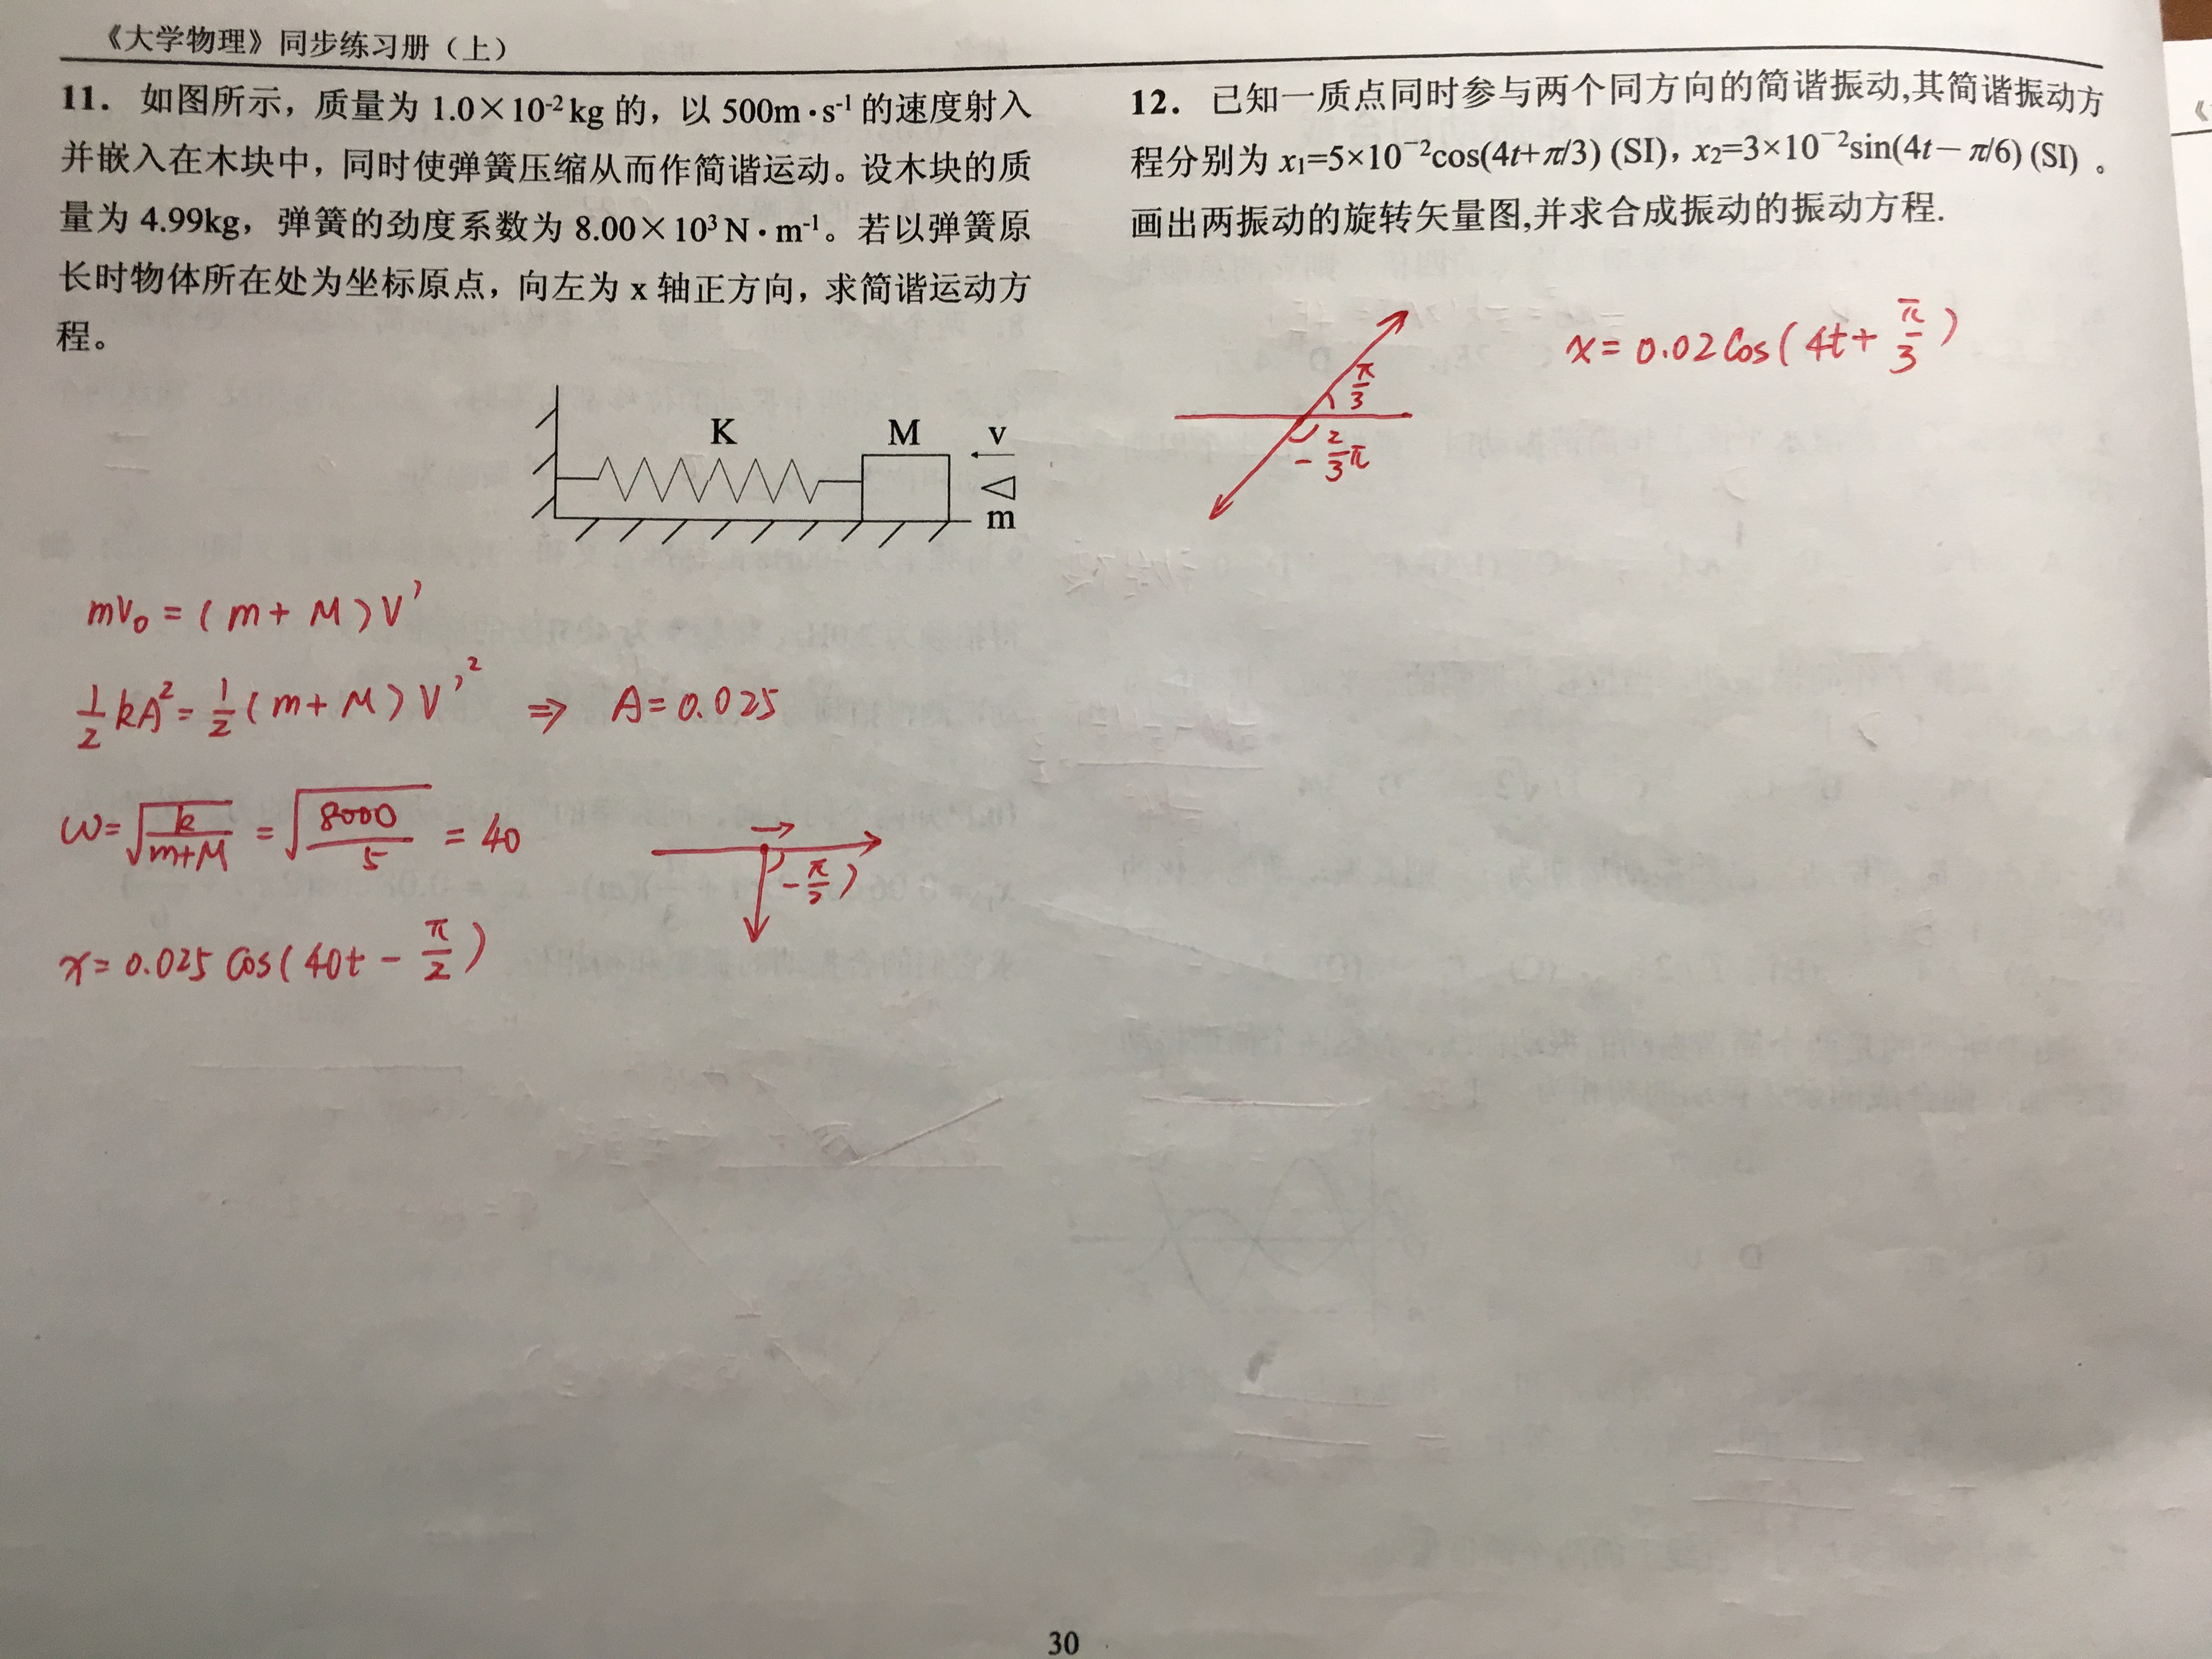 《大学物理》同步练习册（上）
11. 如图所示，质量为 1.0×10⁻²kg 的，以 500m·s⁻¹的速度射入
并嵌入在木块中，同时使弹簧压缩从而作简谐运动。设木块的质
量为 4.99kg，弹簧的劲度系数为 8.00×10³N·m⁻¹。若以弹簧原
长时物体所在处为坐标原点，向左为 x 轴正方向，求简谐运动方
程。
K
M
v
m
mv₀ = (m+M)v'
½kA² = ½(m+M)v'² ⇒ A=0.025
ω=√(k/(m+M)) = √(8000/5) = 40
-π/2
x=0.025cos(40t - π/2)
12. 已知一质点同时参与两个同方向的简谐振动,其简谐振动方
程分别为 x₁=5×10⁻²cos(4t+π/3) (SI)，x₂=3×10⁻²sin(4t－π/6) (SI) 。
画出两振动的旋转矢量图,并求合成振动的振动方程.
x=0.02cos(4t+π/3)
π/3
-2/3π
30